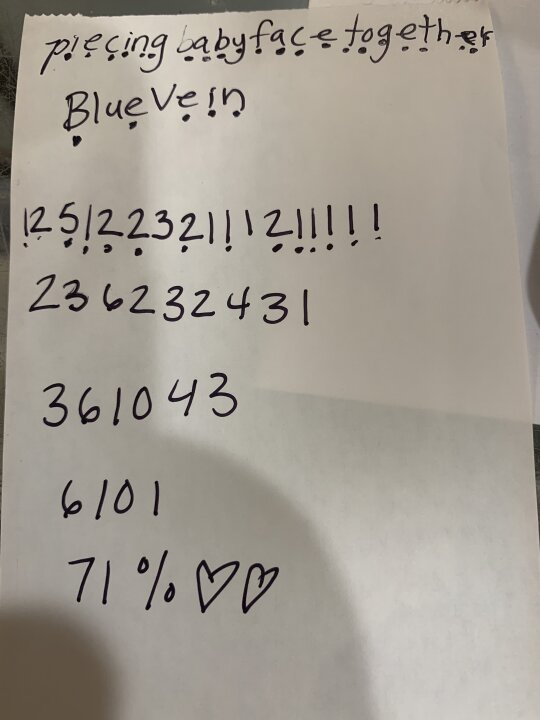 piecing babyface together
Blue Vein
125122321112111111
236232431
361043
6101
71%♡♡